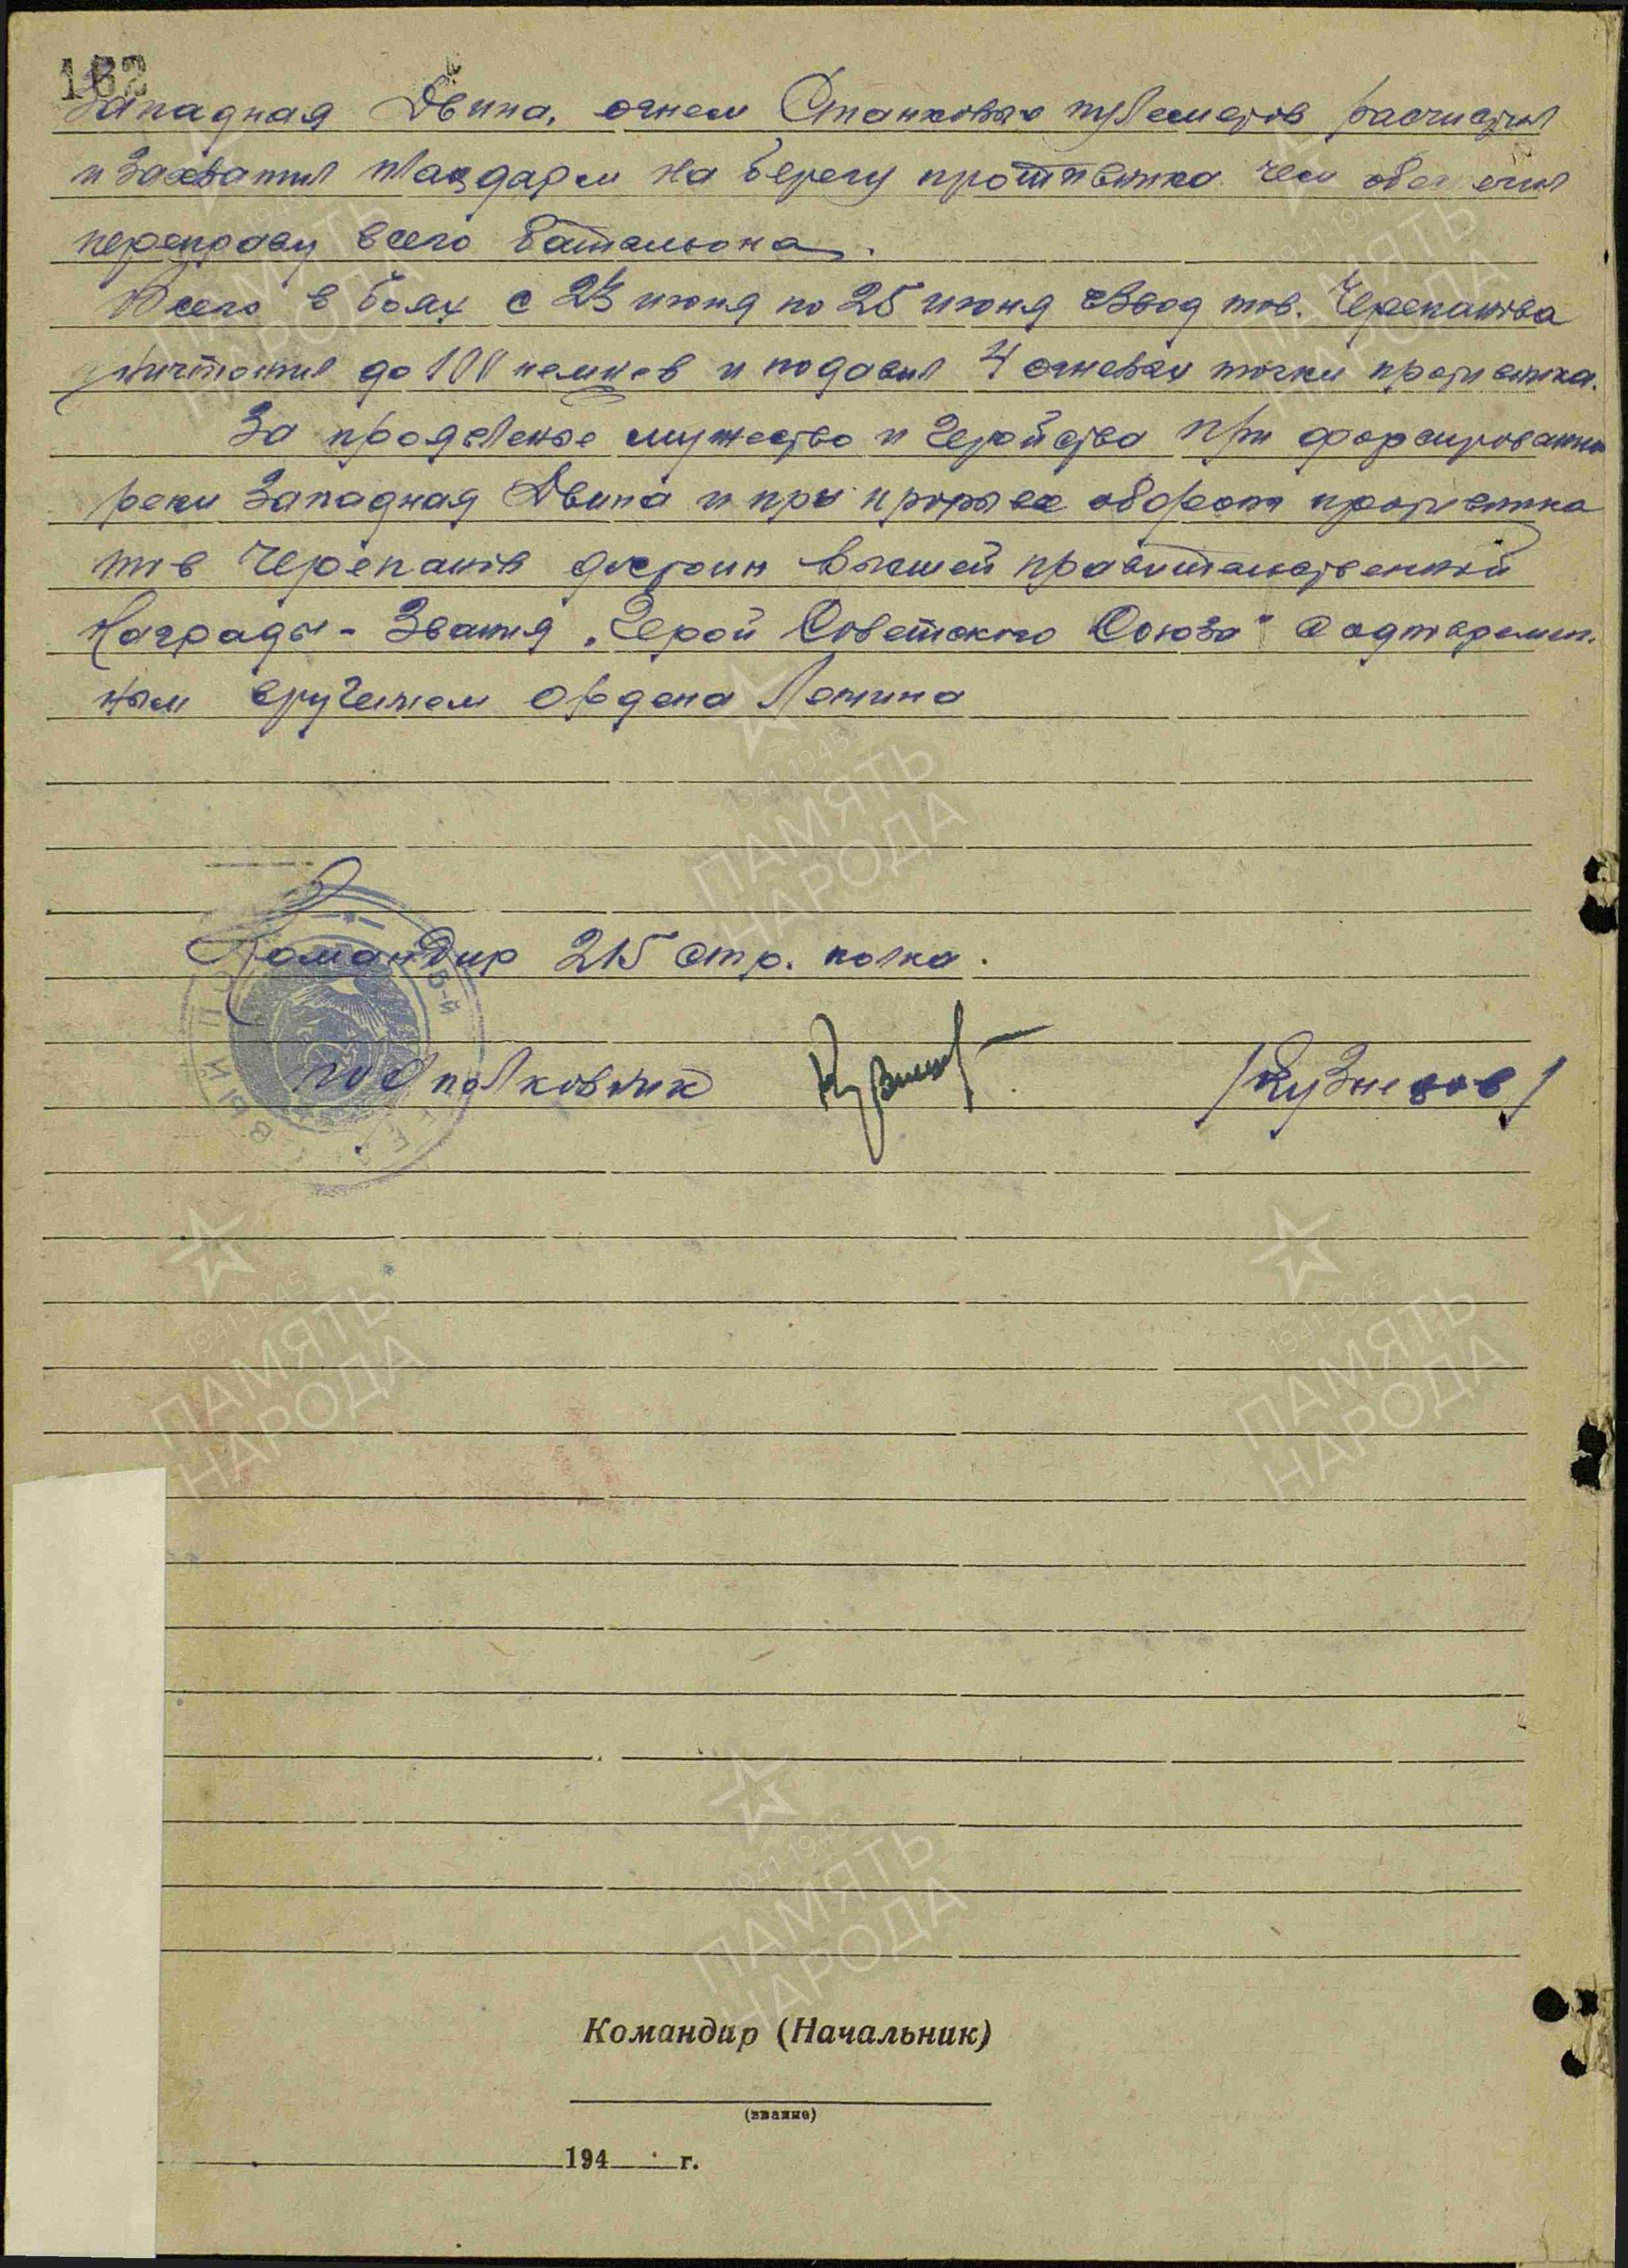 162
Западная Двина, огнем Станковых пулеметов расчистил
и захватил плацдарм на берегу противника чем обеспечил
переправу всего батальона.
Всего в боях с 23 июня по 25 июня взвод тов. Черепанова
уничтожил до 100 немцев и подавил 4 огневых точки противника.
За проявленое мужество и геройство при форсировании
реки Западная Двина и при прорыве обороны противника
тов Черепанов достоин высшей правительственной
Награды - Звания „Герой Советского Союза" с одновремен.
ным вручением ордена Ленина
Командир 215 стр. полка.
подполковник
/Кузнецов/
Командир (Начальник)
(звание)
194 г.
1941-1945
ПАМЯТЬ
НАРОДА